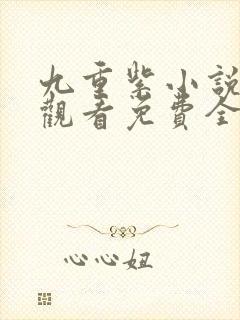 九重紫小說
觀看免費全
心心妞